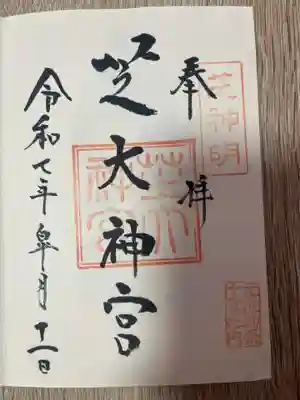 奉拝
芝神明
芝大神宮
芝大神宮
令和七年皐月十一日